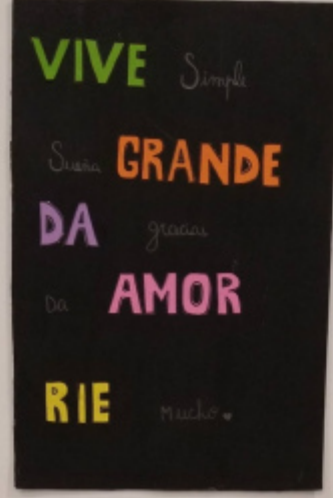 VIVE Simple
Sueña GRANDE
DA gracias
Da AMOR
RIE Mucho